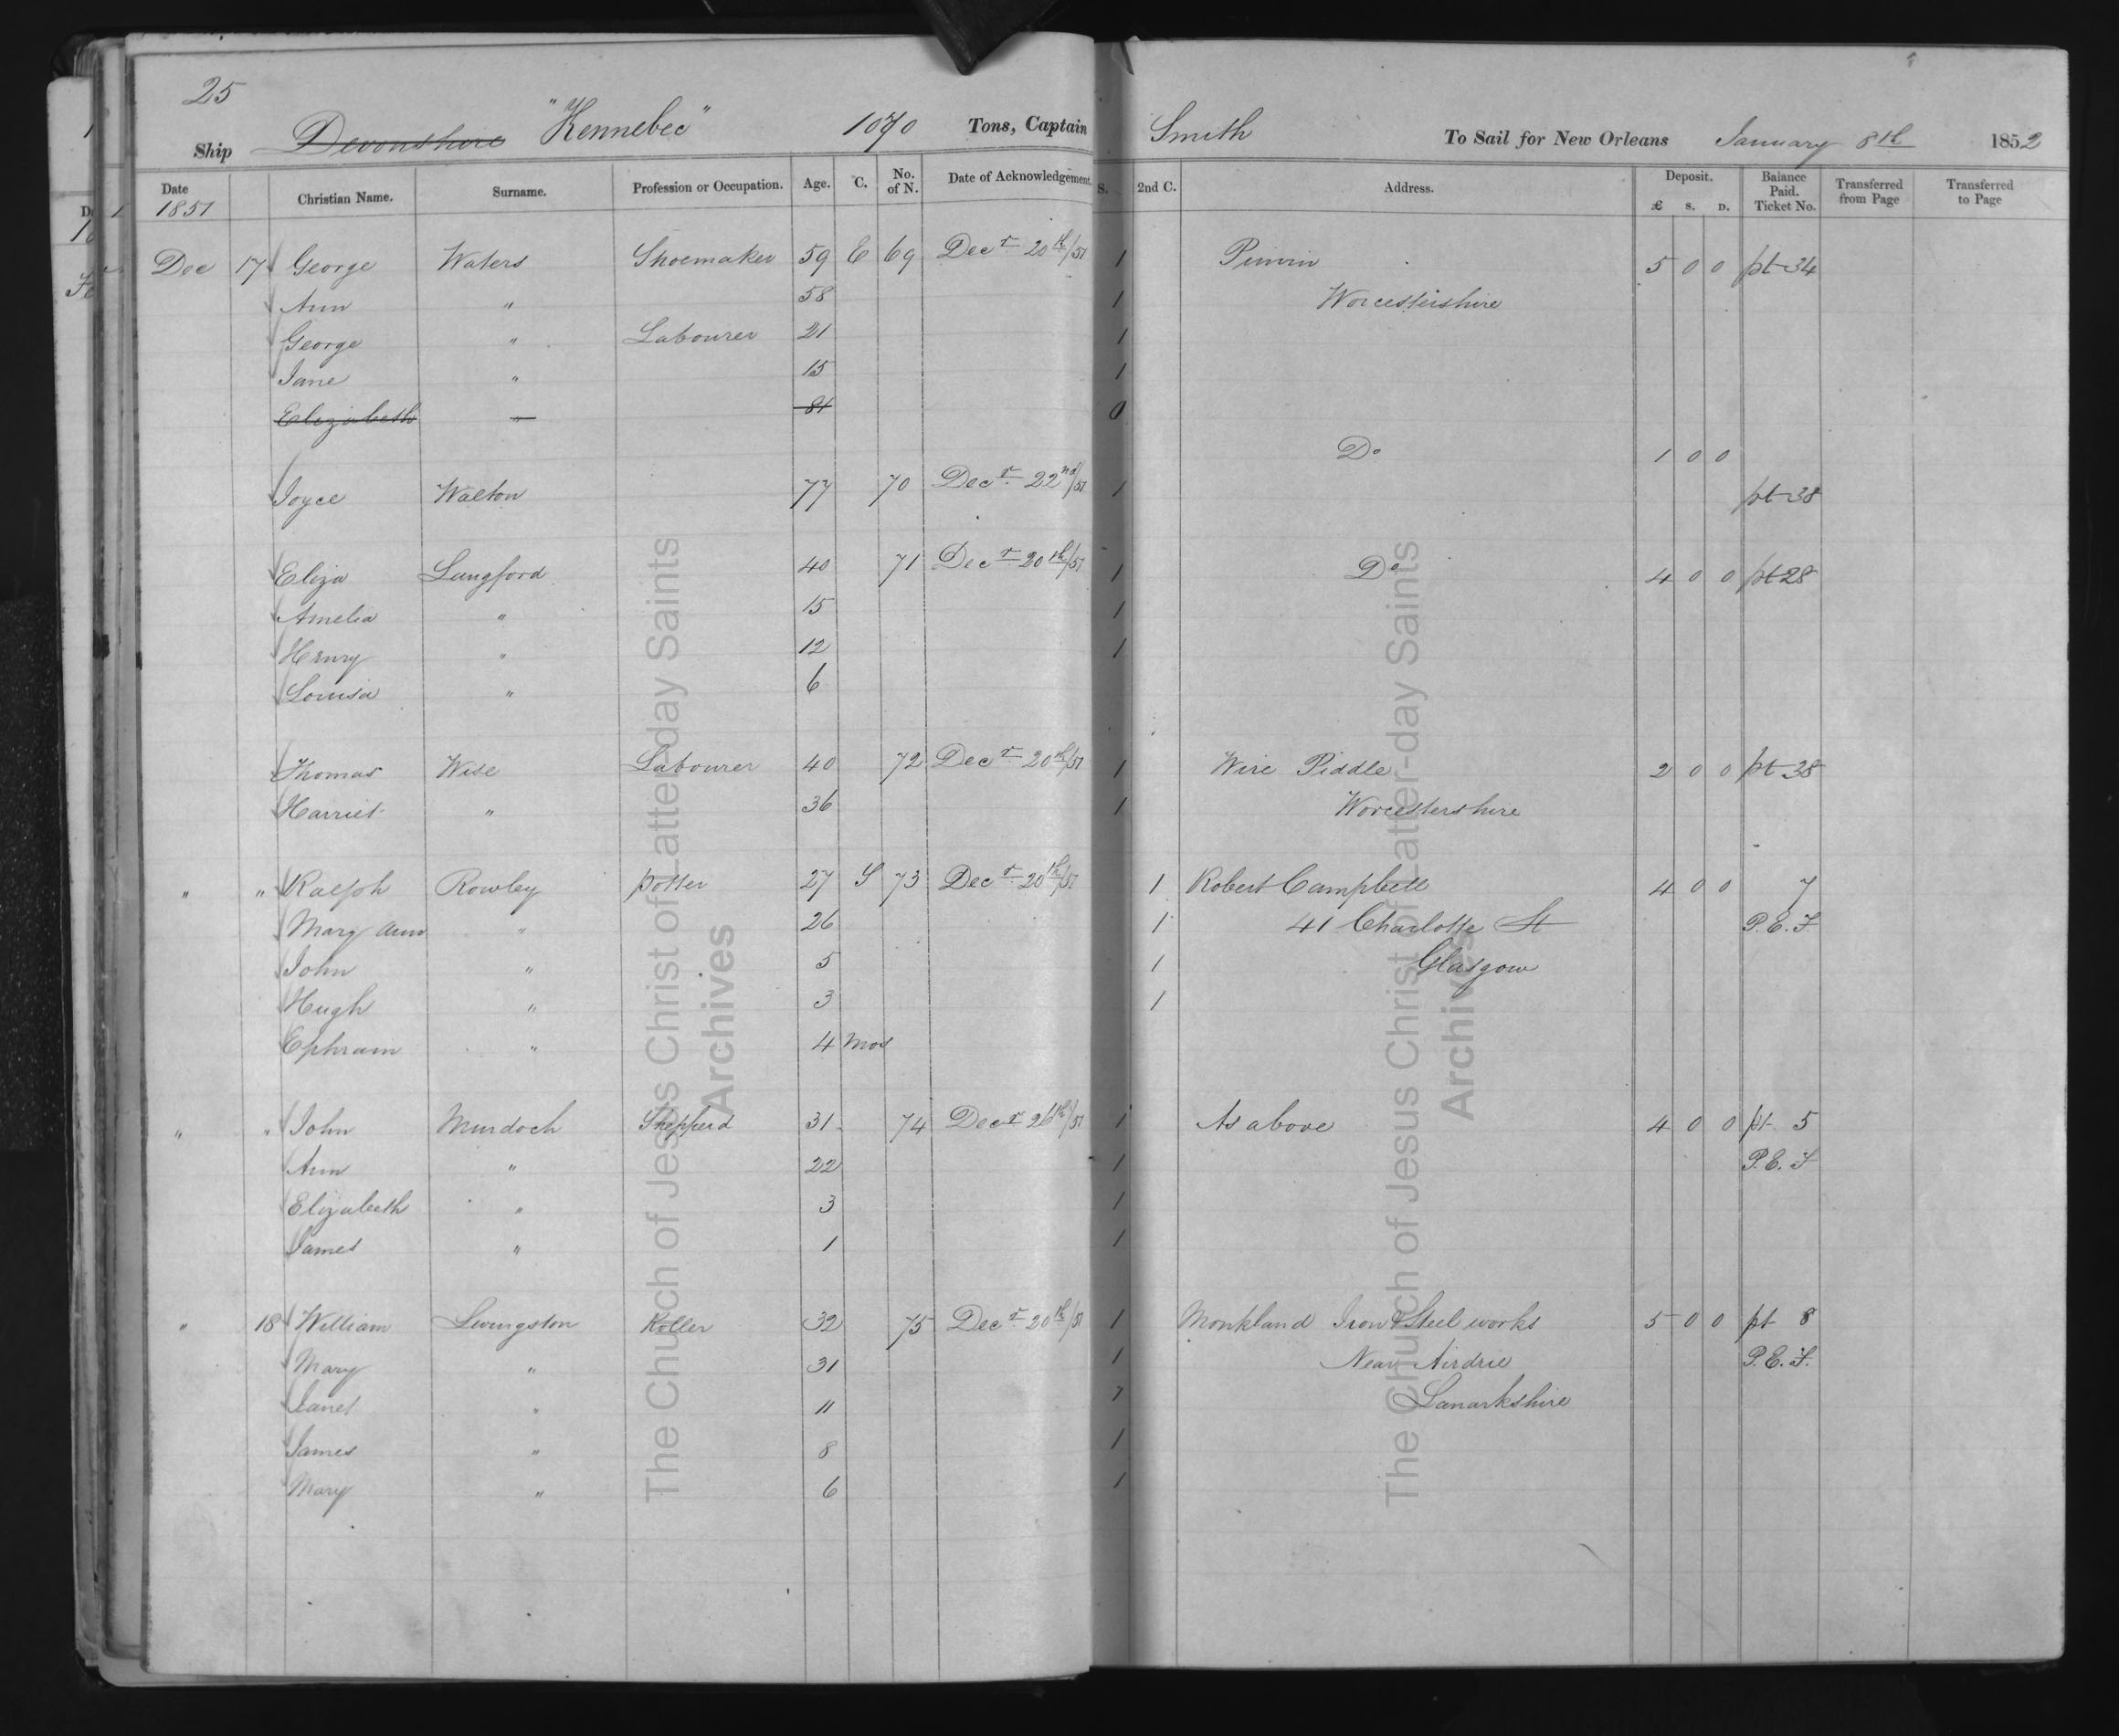 25
Ship Devonshire "Kennebec" 1070 Tons, Captain Smith To Sail for New Orleans January 8th 1852
Date Christian Name. Surname. Profession or Occupation. Age. C. No. of N. Date of Acknowledgement. S. 2nd C. Address. Deposit. £ S. D. Balance Paid. Ticket No. Transferred from Page Transferred to Page
1851
Dec 17 George Waters Shoemaker 59 E 69 Decr 20th/51 1 Pinvin 5 0 0 pt 34
Ann " 58 1 Worcestershire
George " Labourer 21 1
Jane " 15 1
Elizabeth " 81 0
Do 1 0 0
Joyce Walton 77 70 Decr 22nd/51 1 pt 38
Eliza Lungford 40 71 Decr 20th/51 1 Do 4 0 0 pt 28
Amelia " 15 1
Henry " 12 1
Louisa " 6
Thomas Wise Labourer 40 72 Decr 20th/51 1 Wire Piddle 2 0 0 pt 38
Harriet " 36 1 Worcestershire
" " Ralph Rowley potter 27 S 73 Decr 20th/51 1 Robert Campbell 4 0 0 7
Mary Ann " 26 1 41 Charlotte St P.E.F
John " 5 1 Glasgow
Hugh " 3 1
Ephram " 4 mos
" " John Murdoch Shepperd 31 74 Decr 26th/51 1 As above 4 0 0 pt 5
Ann " 22 1 P.E.F
Elizabeth " 3 1
James " 1 1
" 18 William Livingston Roller 32 75 Decr 20th/51 1 Monkland Iron & Steel works 5 0 0 pt 8
Mary " 31 1 Near Airdrie P.E.F.
Janet " 11 1 Lanarkshire
James " 8 1
Mary " 6 1
The Church of Jesus Christ of Latter-day Saints
Archives
The Church of Jesus Christ of Latter-day Saints
Archives